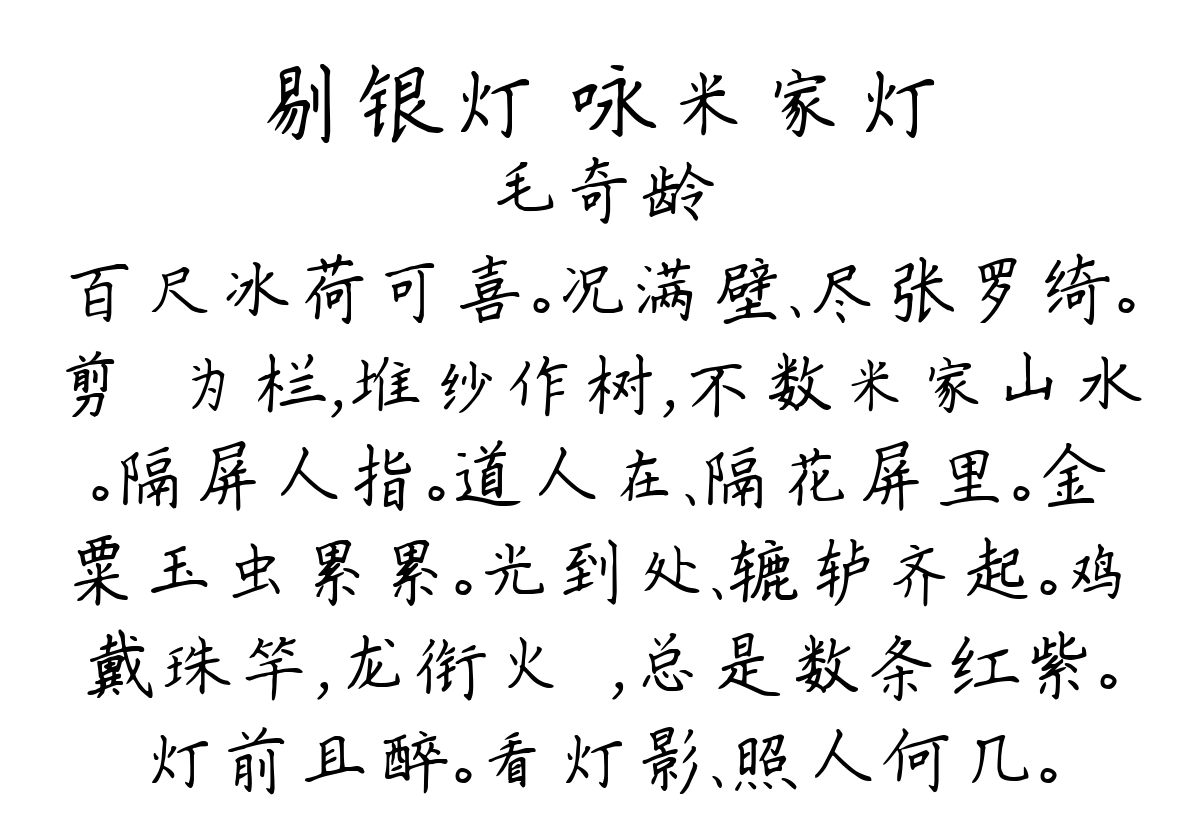 剔银灯 咏米家灯
毛奇龄
百尺冰荷可喜。况满壁、尽张罗绮。
剪 为栏,堆纱作树,不数米家山水
。隔屏人指。道人在、隔花屏里。金
粟玉虫累累。光到处、辘轳齐起。鸡
戴珠竿,龙衔火 ,总是数条红紫。
灯前且醉。看灯影、照人何几。